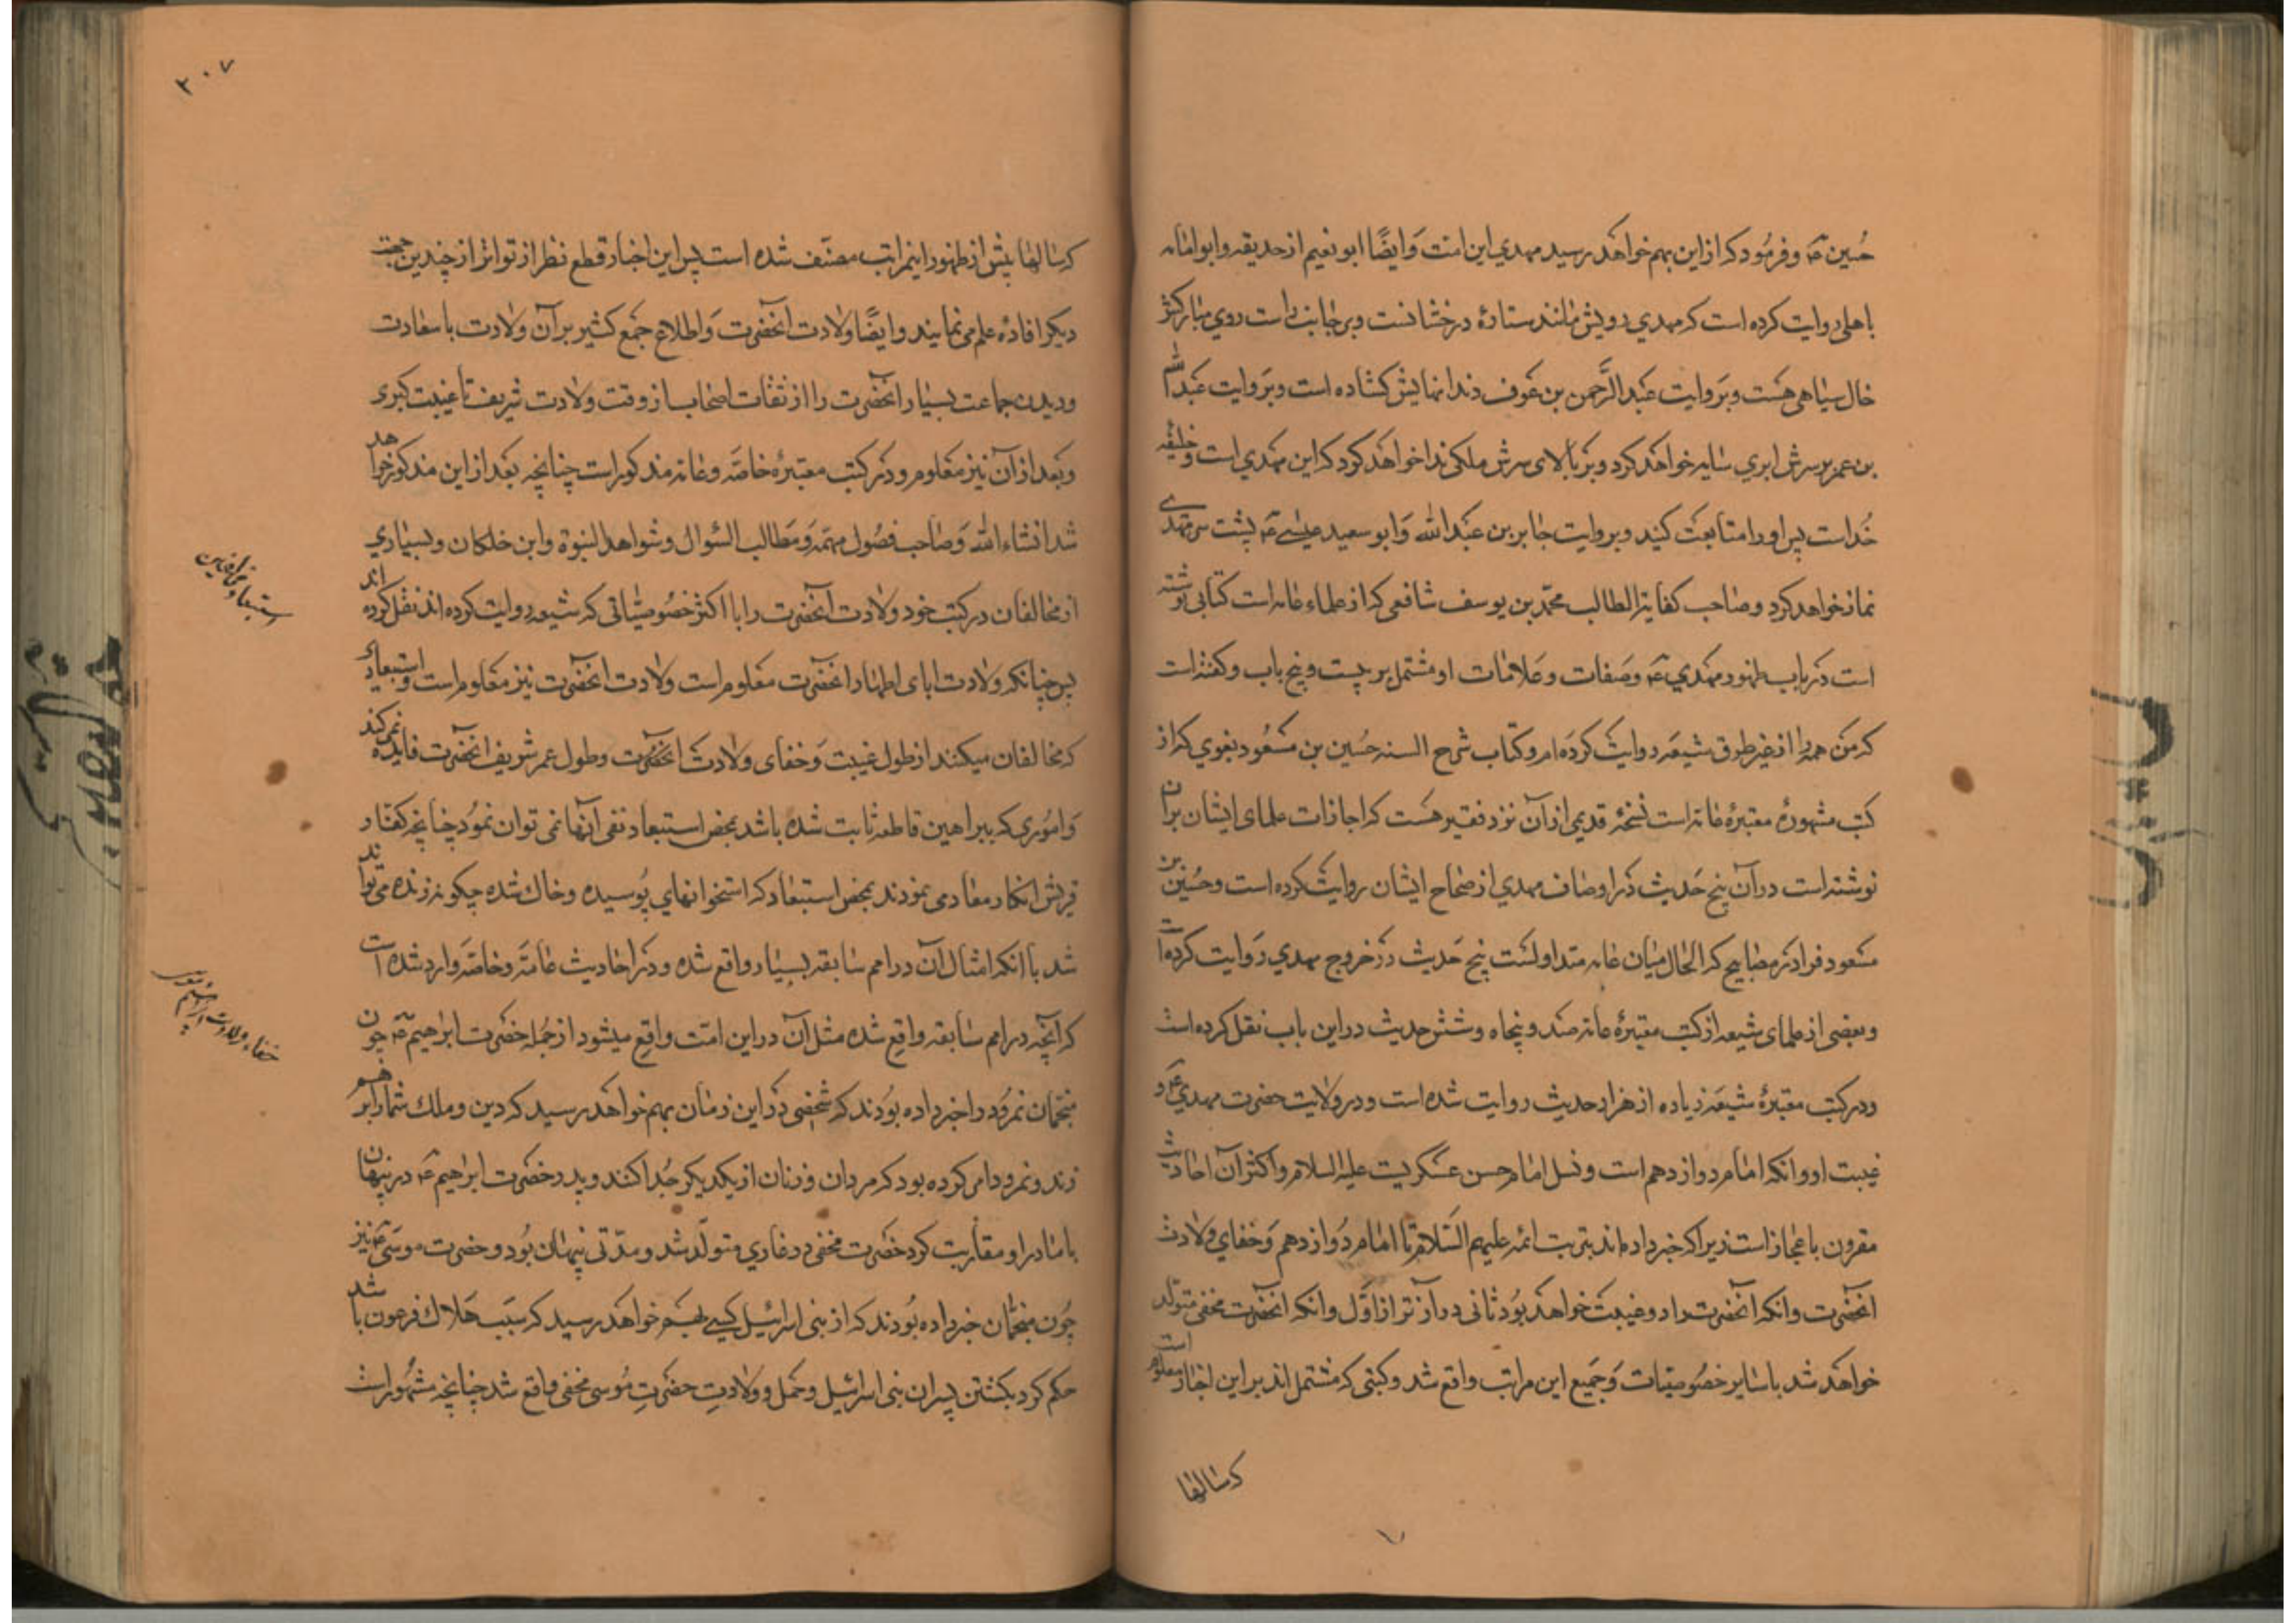 حُسین ع و فرمُود که از این بهم خواهد رسید مهدی این امت وَایضًا ابو نعیم از حدیفه و ابو امامه
باهلی روایت کرده است که مهدی رویش مانند ستارهٔ درخشانست و بر جانب راست روی مبارکش
خال سیاهی هست و بَر وایت عَبد الرَّحمن بن عَوف دندانهایش کشاده است و بَر وایت عَبد الله
بن عمر بر سرش ابری سایه خواهد کرد و بَر بالای سرش ملکی ندا خواهد کرد که این مهدی است و خلیفه
خُداست پس او را متابعت کنید و بروایت جابر بن عَبد الله وَ ابو سعید عیسی ع پشت سر مهدی
نماز خواهد کرد و صاحب کفایة الطالب محمّد بن یوسف شافعی که از علماء عامه است کتابی نوشته
است در باب ظهور مهدی ع و صفات و علامات او مشتمل بر بیست و پنج باب و کفته است
که من همه را از غیر طرق شیعه روایت کرده ام و کتاب شرح السنه حُسین بن مسعُود بغوی که از
کتب مشهورهٔ معتبرهٔ عامه است نسخهٔ قدیمی از آن نزد فقیر هست که اجازات علمای ایشان بر آن
نوشته است در آن پنج حَدیث در اوصاف مهدی از صحاح ایشان روایت کرده است و حُسَین بن
مسعود فرا در مصابیح که الحال میان عامه متداولست پنج حَدیث در خروج مهدی رَوایت کرده است
و بعضی از علمای شیعه از کتب معتبرهٔ عامه صد و پنجاه و شش حدیث در این باب نقل کرده است
و در کتب معتبرهٔ شیعَه زیاده از هزار حدیث روایت شده است و در ولایت حضرت مهدی ع و
غیبت او و انکه امام دوازدهم است و نسل امام حسن عسکریست علیه السلام و اکثر آن احادیث
مقرون باعجاز است زیرا که خبر داده اند بترتیب ائمه علیهم السَّلام تا امام دُوازدهم وَ خفای ولادت
انحضرت و انکه آنحضرت را دو غیبت خواهد بُود ثانی دراز تر از اوَّل و انکه انحضرت مخفی متولد
خواهَد شد با سایر خصُوصیّات وَ جَمیع این مراتب واقع شد و کتبی که مشتمل اند بر این اخبار معلوم است
که سالها
۳۰۷
که سالها پیش از ظهور اینمراتب مصنّف شده است پس این اخبار قطع نظر از تواتر از چندین جهت
دیکر افادهٔ علم می نمایند و ایضًا ولادت آنحضرت وَ اطلاع جمَع کثیر بر آن ولادت با سعادت
و دیدن جماعت بسیار انحضرت را از ثقات اصحاب از وقت ولادت شریف تا غیبت کبری
و بَعد از آن نیز معلوم و در کتب معتبرهٔ خاصّه و عامه مذکور است چنانچه بعَد از این مذکور خواهد
شد انشاء الله وَ صاحب فصُول مهمّه وَ مَطالب السّوال و شواهد النبوة و ابن خلکان و بسیاری
از مخالفان در کتب خود ولادت آنحضرت را با اکثر خصُوصیّاتی که شیعه روایت کرده اند نقل کرده اند
پس چنانکه ولادت ابای اطهار انحضرت معلوم است ولادت انحضرت نیز معلوم است و استبعادی
که مخالفان میکنند از طول غیبت وَ خفای ولادت انحضرت و طول عمر شریف انحضرت فایده نمیکند
وَ امُوری که ببراهین قاطعه ثابت شده باشد بمحض استبعاد نفی آنها نمی توان نمُود چنانچه کفار
قریش انکار معاد می نمودند بمحض استبعاد که استخوانهای پُوسیده و خاک شده چکونه زنده می تواند
شد با انکه امثال آن در امم سابقه بسیار واقع شده و در احادیث عامّه و خاصّه وارد شده است
که آنچه در امم سابقه واقع شده مثل آن در این امّت واقع میشود از جمُله حضرت ابراهیم ع چون
منجّمان نمرُود را خبر داده بُودند که شخصی در این زمان بهم خواهد رسید که دین و ملک شما را بر هم
زند و نمرود امر کرده بود که مردان و زنان از یکدیکر جُدا کنند و پدر حضرت ابراهیم ع در پنهان
با مادر او مقاربت کرد حضرت مخفی در غاری متولّد شد و مدّتی پنهان بُود و حضرت موسی ع نیز
چُون منجّمان خبر داده بُودند که از بنی اسرائیل کسی بهم خواهَد رسید که سبَب هلاک فرعون باشد
حکم کرد بکشتن پسران بنی اسرائیل و حَمل و ولادتِ حضرتِ مُوسی مخفی واقع شد چنانچه مشهُور است
خفاء ولادت ابراهیم